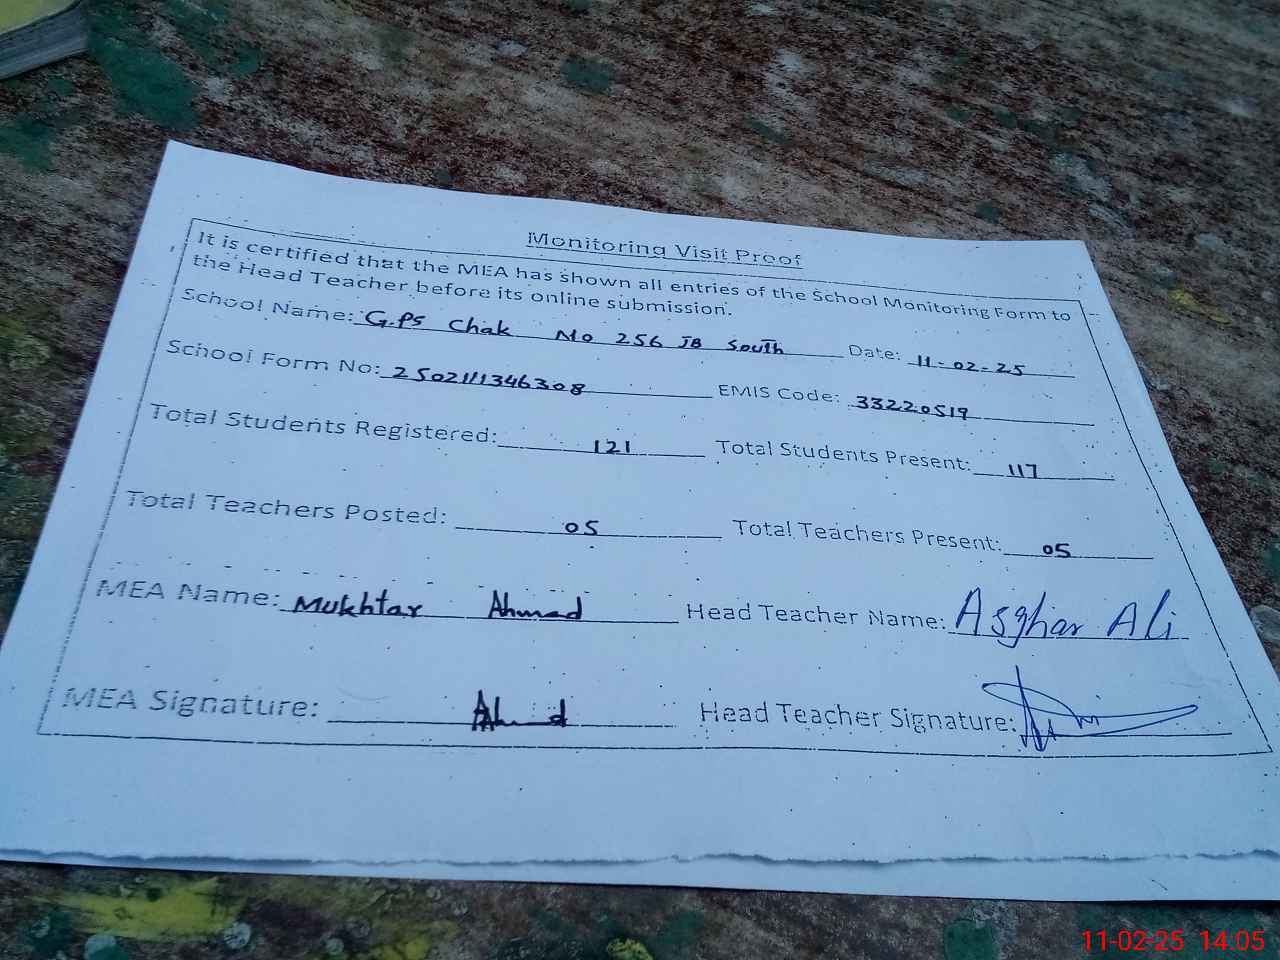 Monitoring Visit Proof
It is certified that the MEA has shown all entries of the School Monitoring Form to
the Head Teacher before its online submission.
School Name: G.PS Chak No 256 JB South Date: 11-02-25
School Form No: 25021111346308 EMIS Code: 33220519
Total Students Registered: 121 Total Students Present: 117
Total Teachers Posted: 05 Total Teachers Present: 05
MEA Name: Mukhtar Ahmad Head Teacher Name: Asghar Ali
MEA Signature: Head Teacher Signature:
11-02-25 14:05